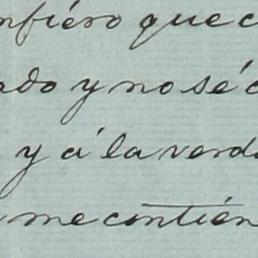 nfiéro que c
ado y no sé c
y á la verda
me contién